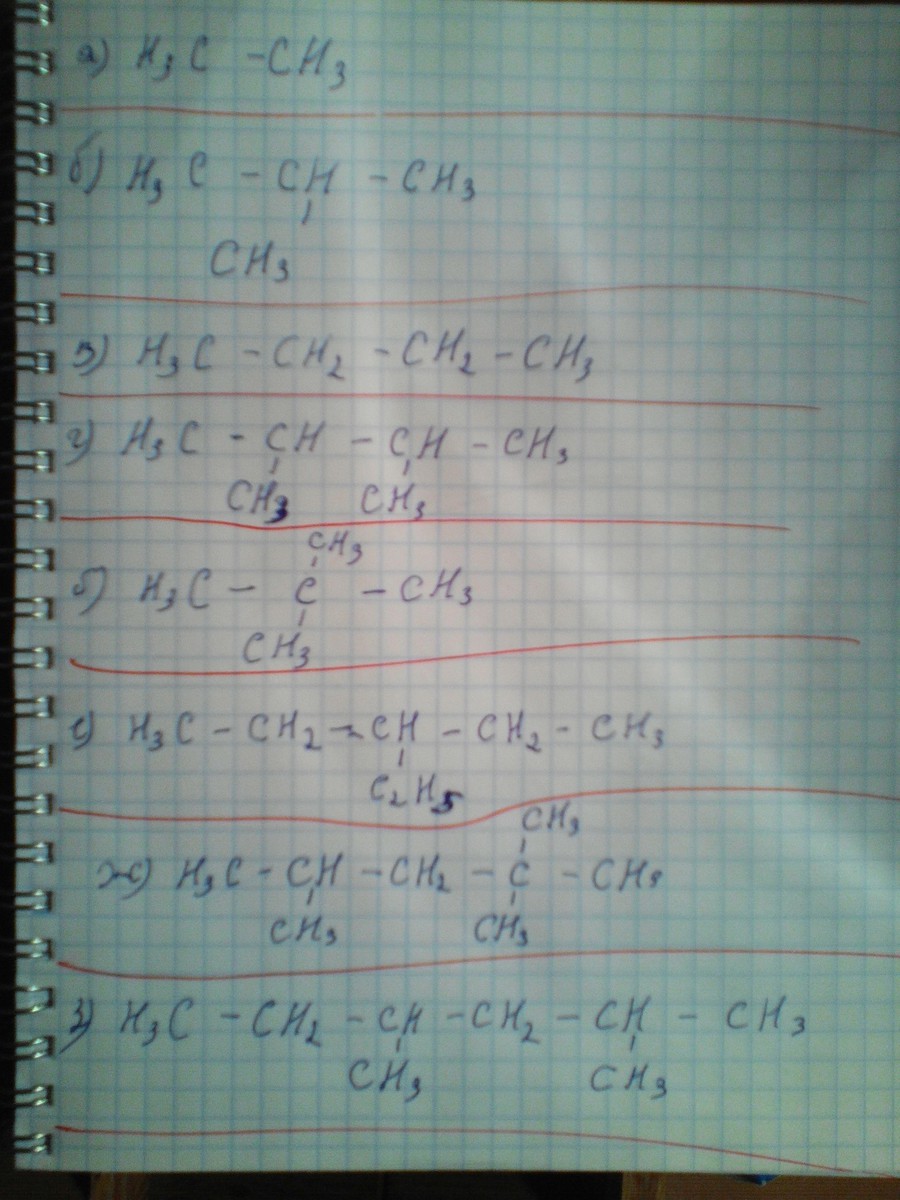 а) H₃C - CH₃
б) H₃C - CH - CH₃
CH₃
в) H₃C - CH₂ - CH₂ - CH₃
г) H₃C - CH - CH - CH₃
CH₃ CH₃
CH₃
д) H₃C - C - CH₃
CH₃
е) H₃C - CH₂ - CH - CH₂ - CH₃
C₂H₅
CH₃
ж) H₃C - CH - CH₂ - C - CH₃
CH₃ CH₃
з) H₃C - CH₂ - CH - CH₂ - CH - CH₃
CH₃ CH₃